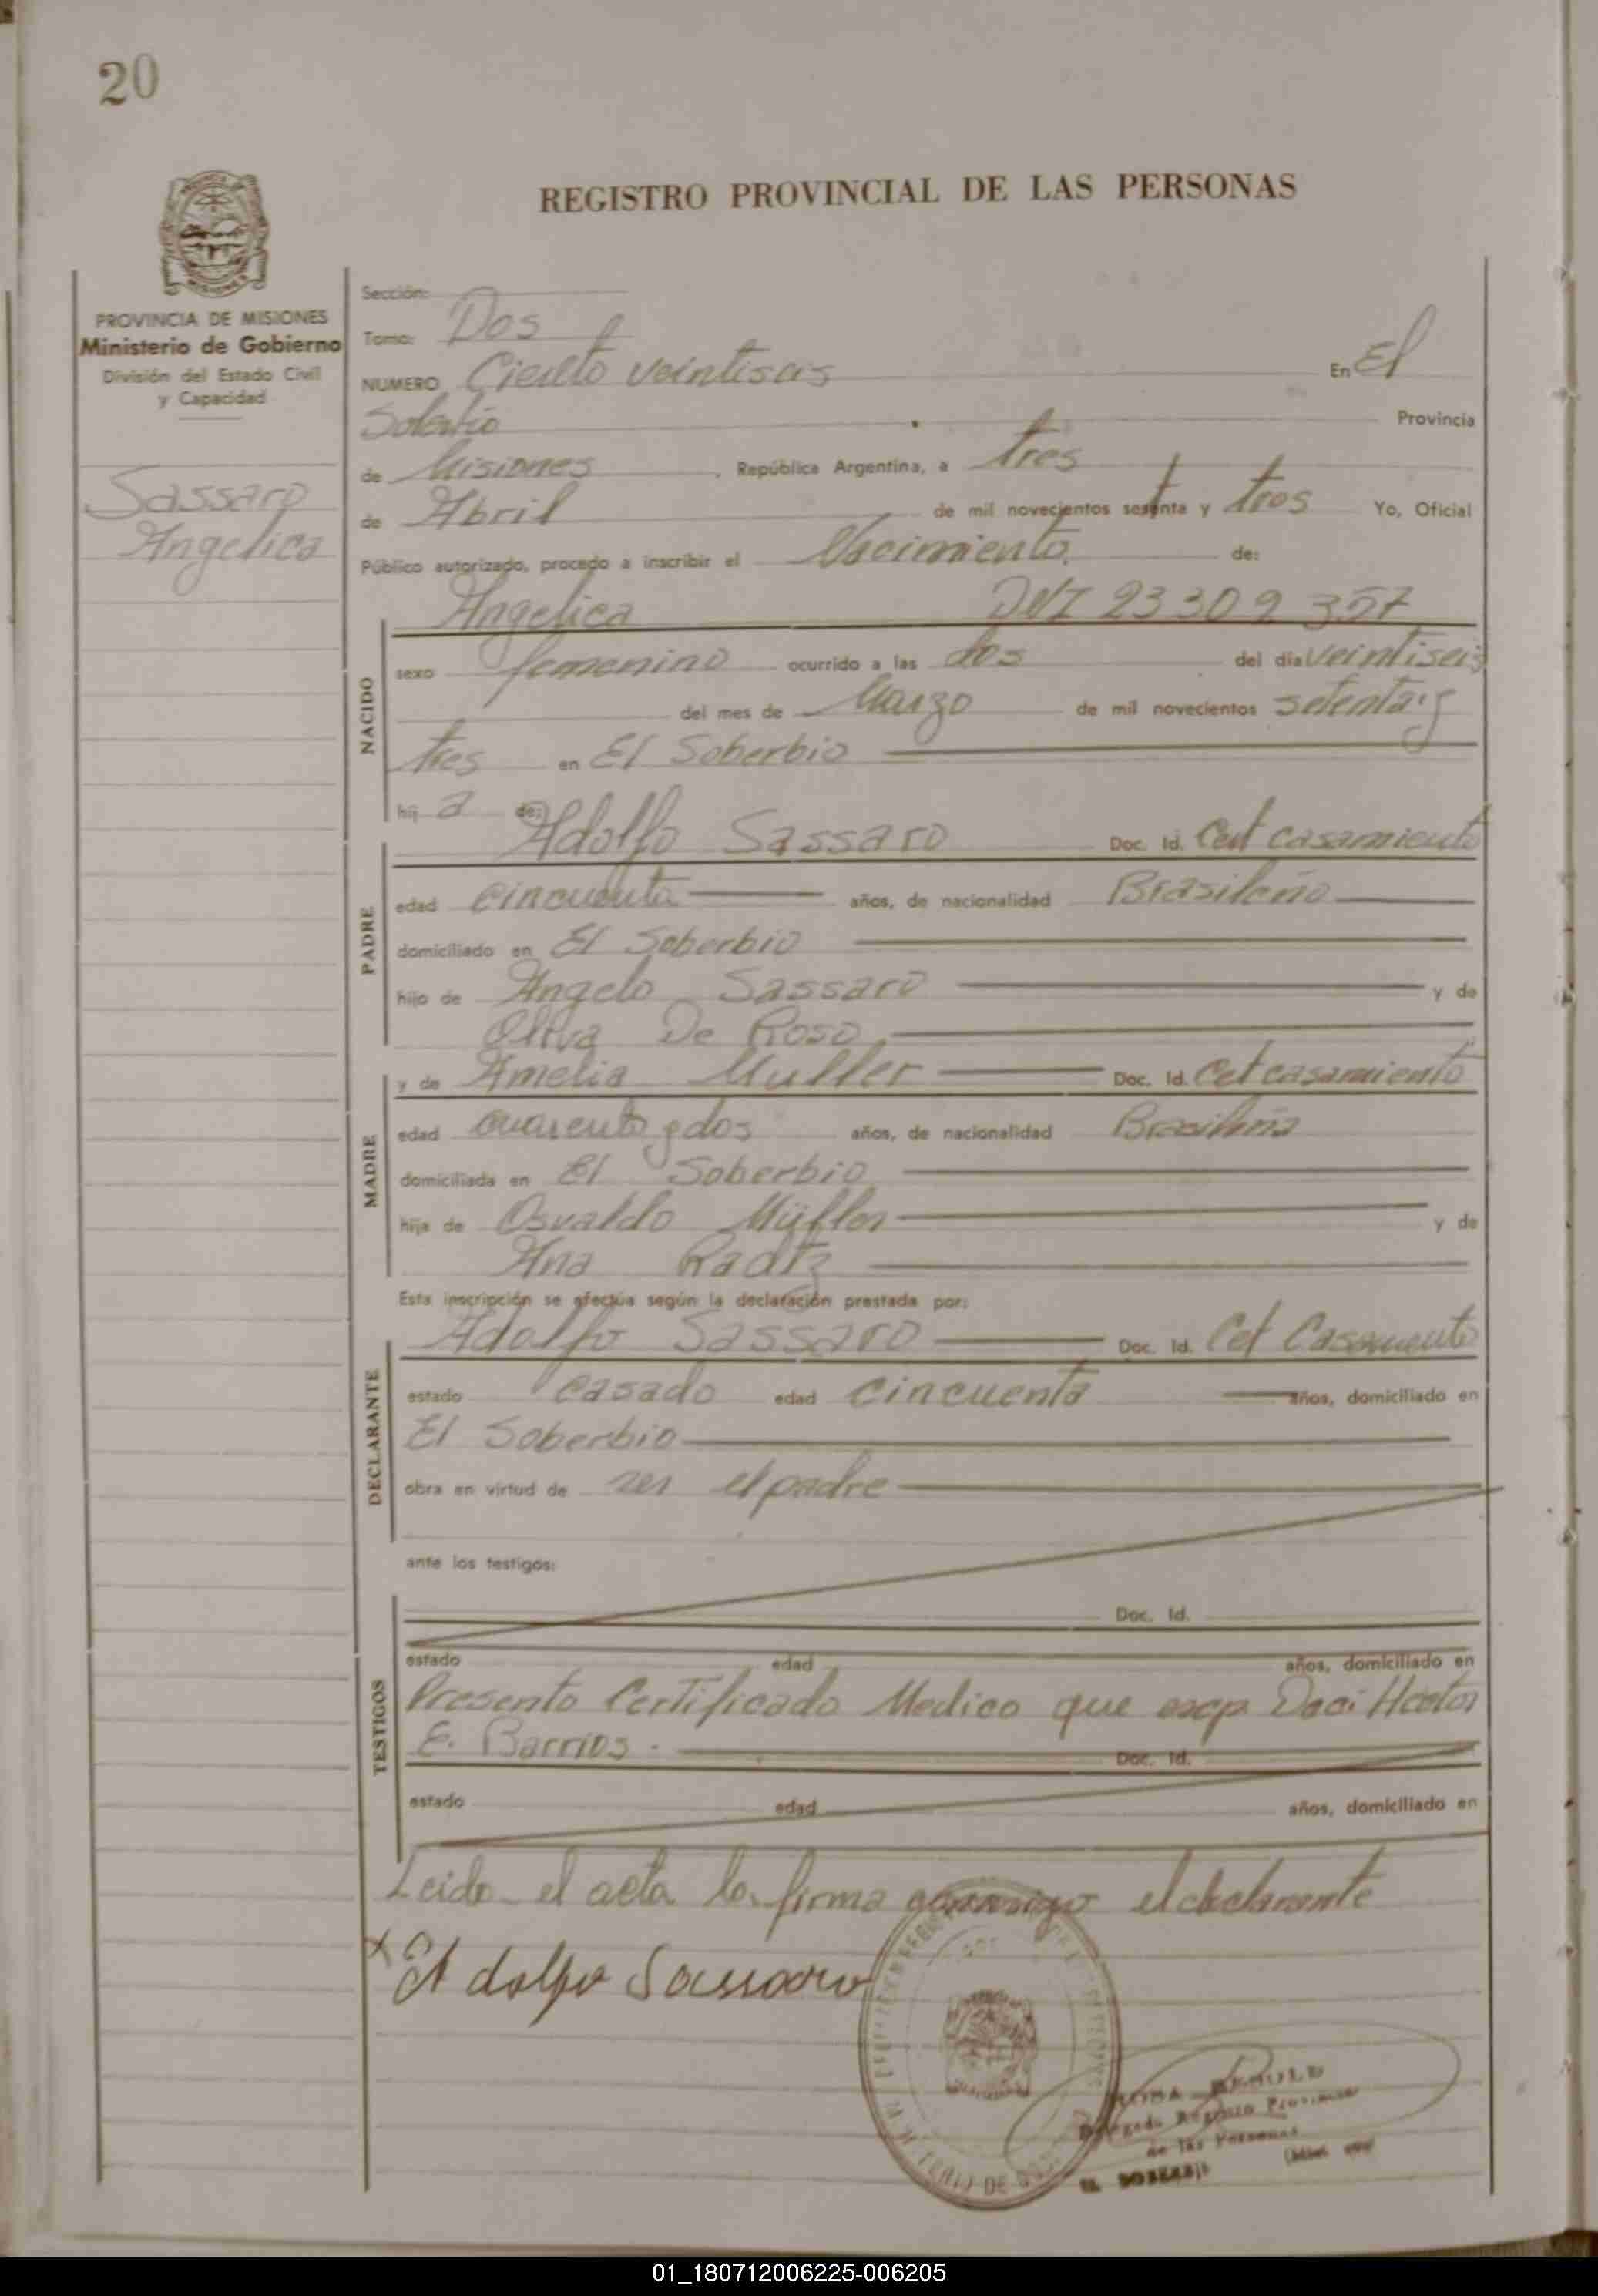 20
REGISTRO PROVINCIAL DE LAS PERSONAS
PROVINCIA DE MISIONES
Ministerio de Gobierno
División del Estado Civil
y Capacidad
Sassaro
Angelica
Sección:
Tomo: Dos
NUMERO Ciento veintiseis En El
Soberbio Provincia
de Misiones , República Argentina, a tres
de Abril de mil novecientos setenta y tres Yo, Oficial
Público autorizado, procedo a inscribir el Nacimiento. de:
Angelica DNI 23 309 357
NACIDO
sexo femenino ocurrido a las dos del día veintiseis
del mes de Marzo de mil novecientos setenta y
tres en El Soberbio
hij a de:
Adolfo Sassaro Doc. Id. Cert casamiento
PADRE
edad cincuenta años, de nacionalidad Brasileño
domiciliado en El Soberbio
hijo de Angelo Sassaro y de
Oliva De Roso
y de Amelia Muller Doc. Id. Cet casamiento
MADRE
edad cuarenta y dos años, de nacionalidad Brasileña
domiciliada en El Soberbio
hija de Osvaldo Müller y de
Ana Radtz
Esta inscripción se efectúa según la declaración prestada por:
Adolfo Sassaro Doc. Id. Cet Casamiento
DECLARANTE
estado Casado edad cincuenta años, domiciliado en
El Soberbio
obra en virtud de ser el padre
ante los testigos:
Doc. Id.
TESTIGOS
estado edad años, domiciliado en
Presento Certificado Medico que Hector
E. Barrios. Doc. Id.
estado edad años, domiciliado en
Leido el acta la firma conmigo el declarante
x Adolfo Sassaro
Delegado Registro Provincial
de las Personas
EL SOBERBIO
01_180712006225-006205